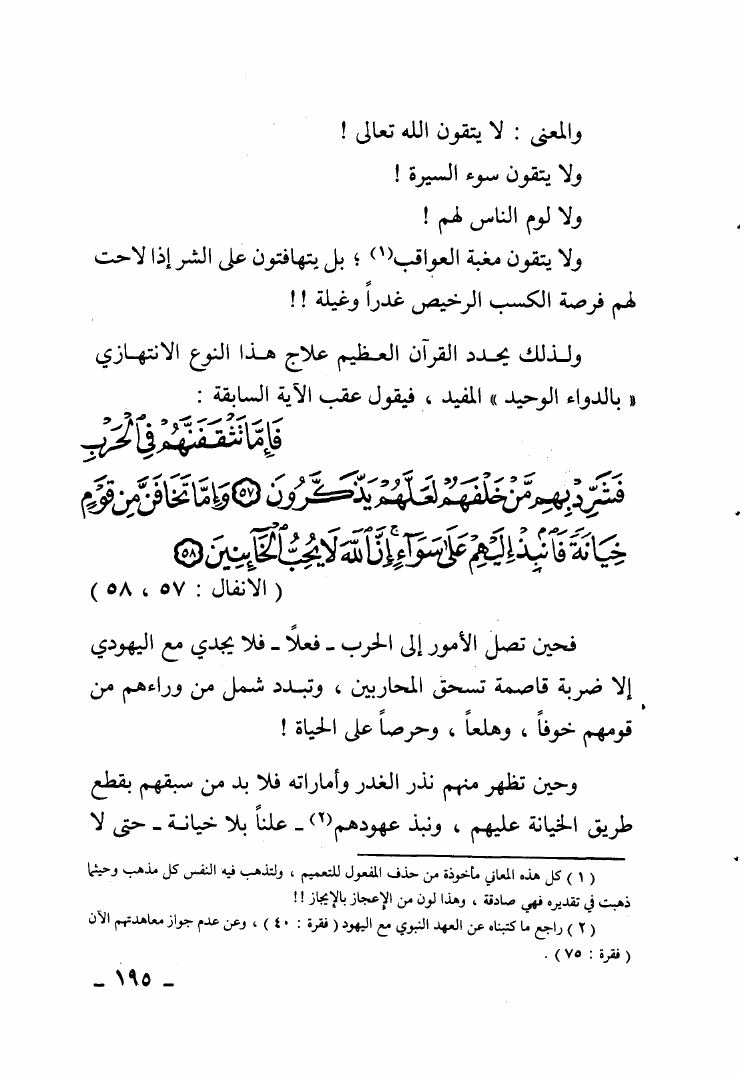 والمعنى : لا يتقون الله تعالى !
ولا يتقون سوء السيرة !
ولا لوم الناس لهم !
ولا يتقون مغبة العواقب(١) ؛ بل يتهافتون على الشر إذا لاحت
لهم فرصة الكسب الرخيص غدراً وغيلة !!
ولـذلك يحـدد القرآن العـظيم علاج هـذا النوع الانتهـازي
« بالدواء الوحيد » المفيد ، فيقول عقب الآية السابقة :
فَإِمَّا تَثْقَفَنَّهُمْ فِي ٱلْحَرْبِ
فَشَرِّدْ بِهِم مَّنْ خَلْفَهُمْ لَعَلَّهُمْ يَذَّكَّرُونَ ٥٧ وَإِمَّا تَخَافَنَّ مِن قَوْمٍ
خِيَانَةً فَٱنۢبِذْ إِلَيْهِمْ عَلَىٰ سَوَآءٍ ۚ إِنَّ ٱللَّهَ لَا يُحِبُّ ٱلْخَآئِنِينَ ٥٨
( الانفال : ٥٧ ، ٥٨ )
فحين تصل الأمور إلى الحرب ـ فعلاً ـ فلا يجدي مع اليهودي
إلا ضربة قاصمة تسحق المحاربين ، وتبـدد شمل من وراءهم من
قومهم خوفاً ، وهلعاً ، وحرصاً على الحياة !
وحين تظهر منهم نذر الغدر وأماراته فلا بد من سبقهم بقطع
طريق الخيانة عليهم ، ونبذ عهودهم(٢) ـ علناً بلا خيانـة ـ حتى لا
( ١ ) كل هذه المعاني مأخوذة من حذف المفعول للتعميم ، ولتذهب فيه النفس كل مذهب وحيثما
ذهبت في تقديره فهي صادقة ، وهذا لون من الإعجاز بالإيجاز !!
( ٢ ) راجع ما كتبناه عن العهد النبوي مع اليهود ( فقرة : ٤٠ ) ، وعن عدم جواز معاهدتهم الآن
( فقرة : ٧٥ ) .
ـ ١٩٥ ـ